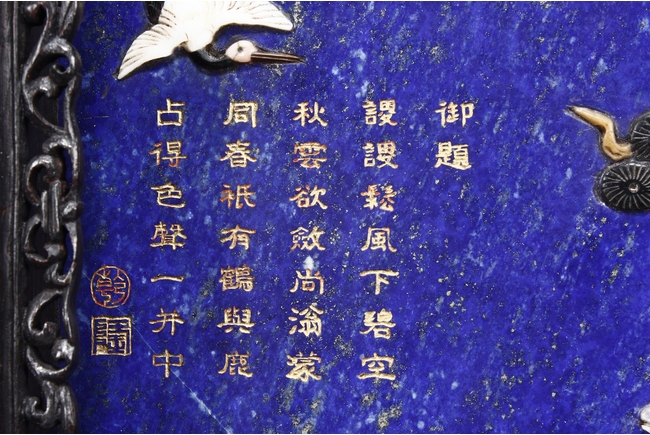 御題
謖謖鬆風下碧空
秋雲欲斂尚滃濛
同春祇有鶴與鹿
占得色聲一并中